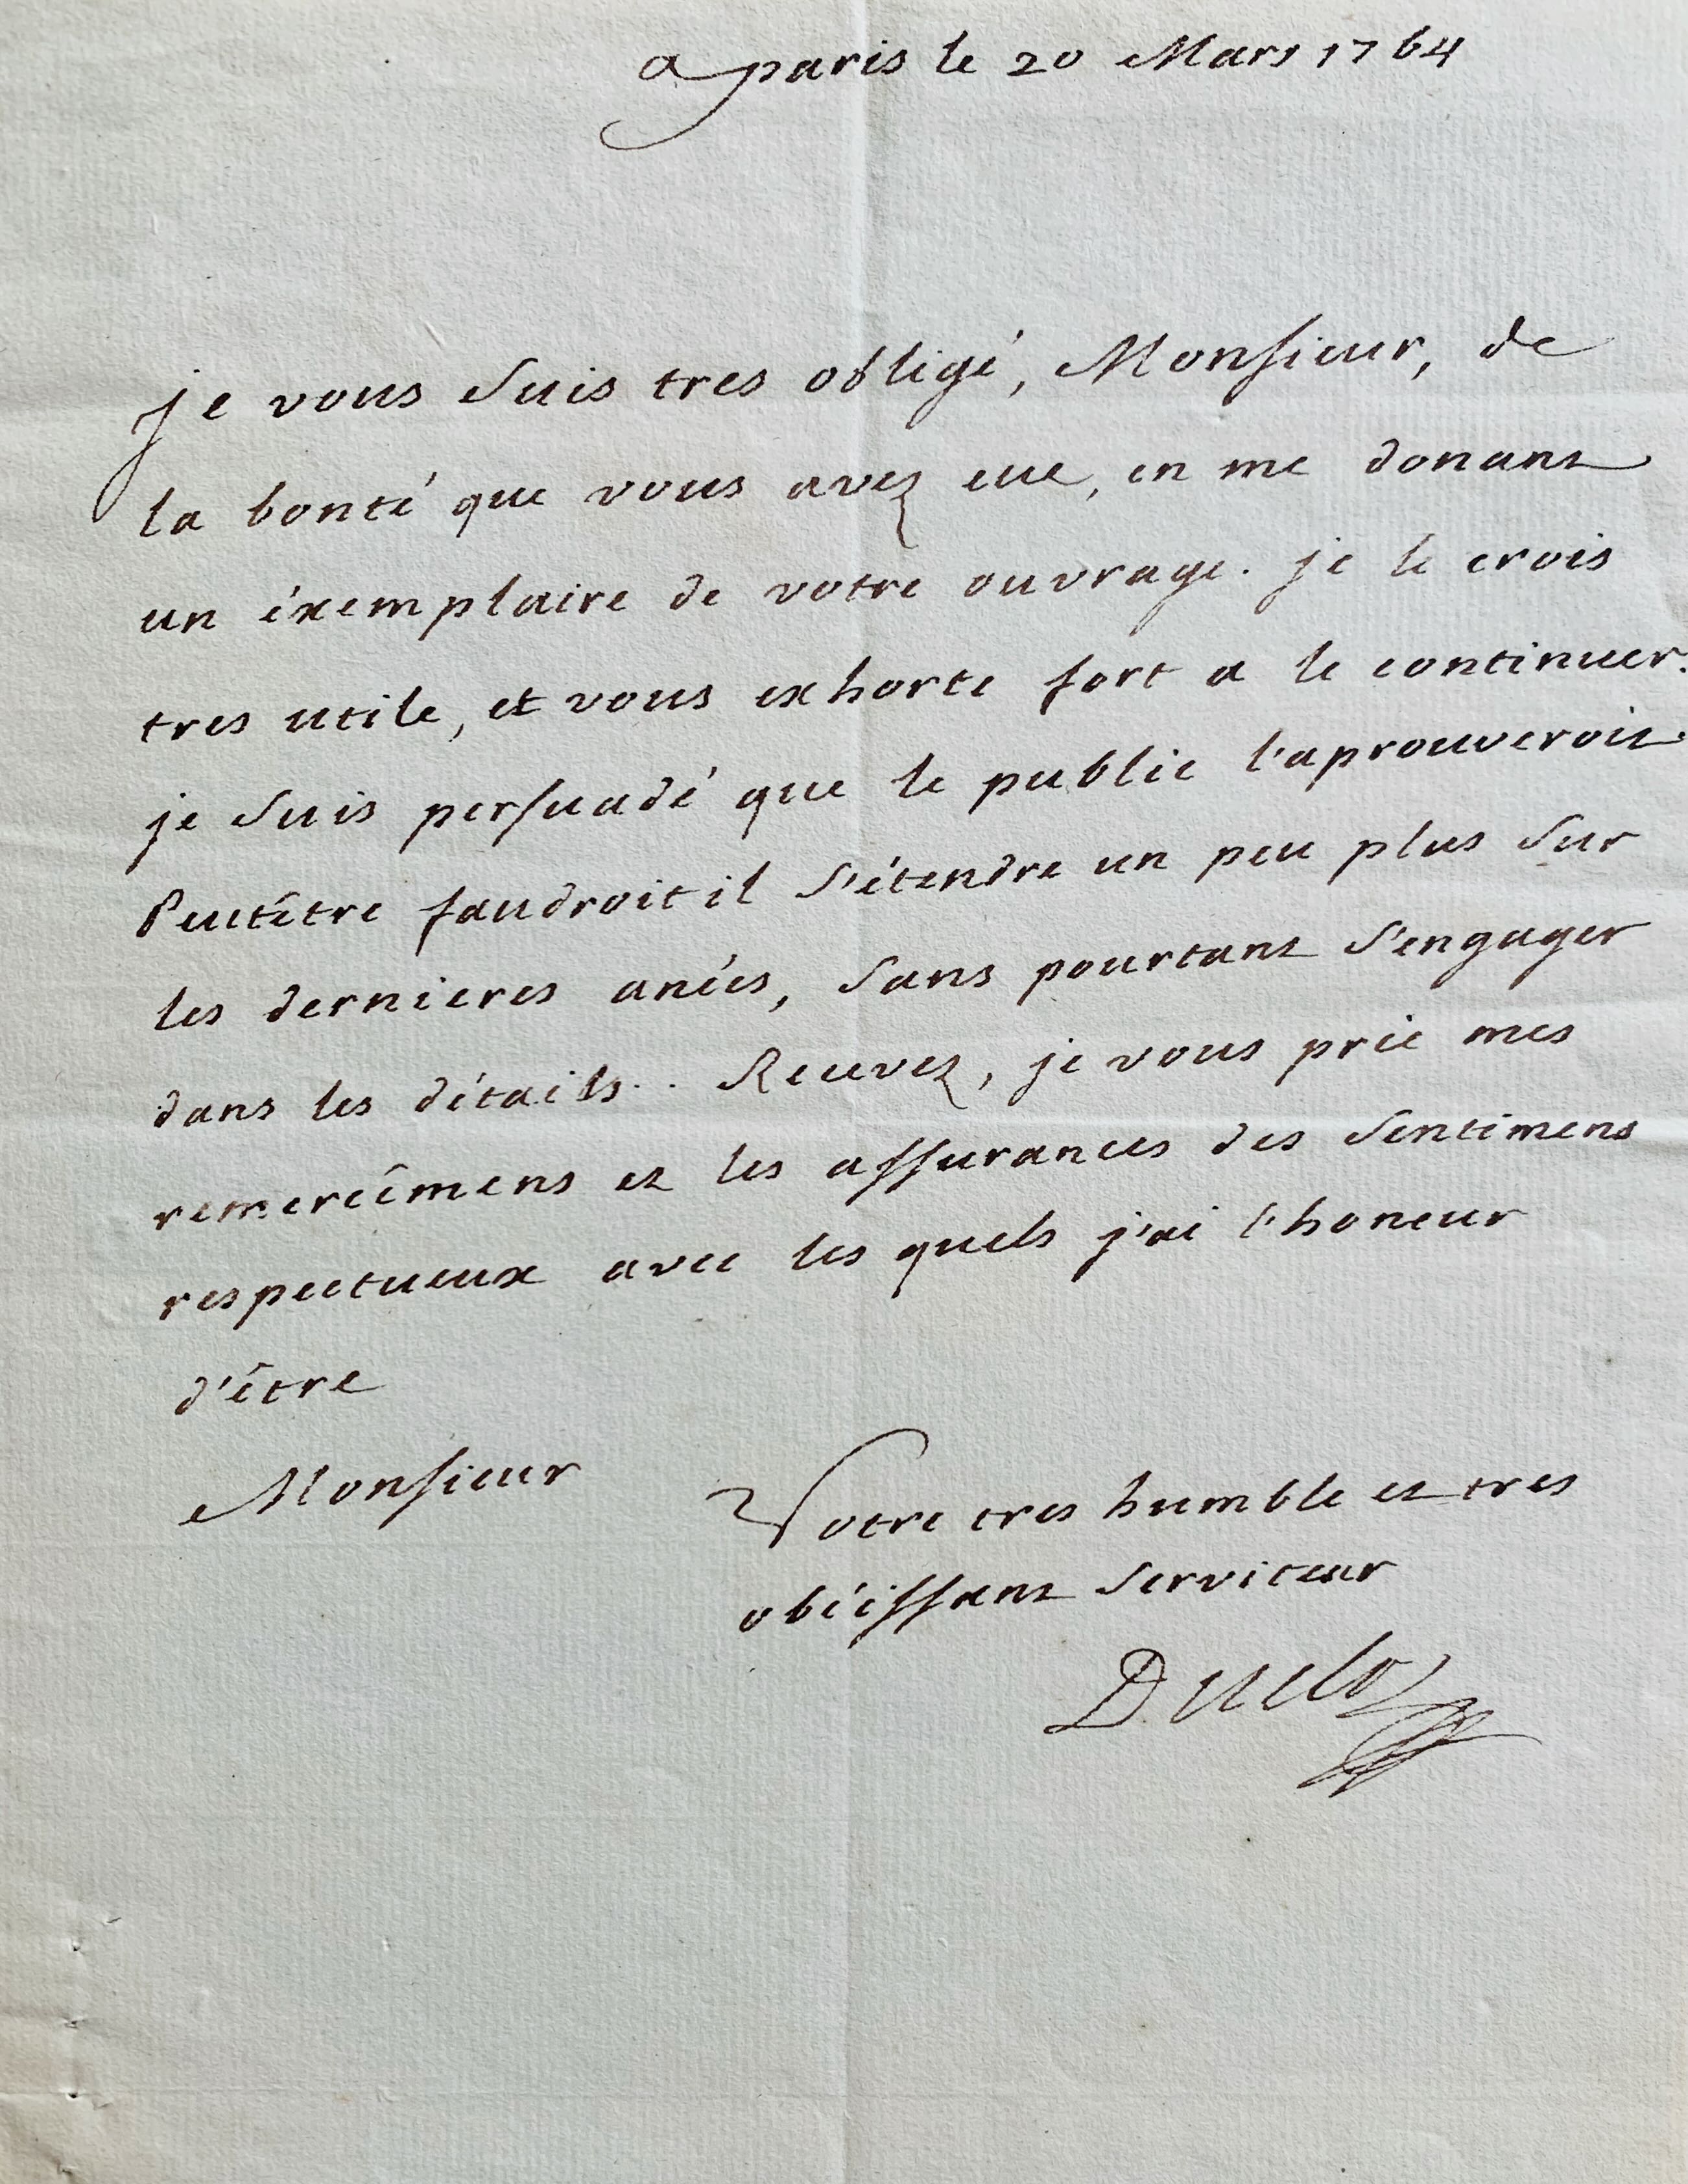 a paris le 20 Mars 1764
je vous suis tres obligé, Monsieur, de
la bonté que vous avez eue, en me donant
un éxemplaire de votre ouvrage. je le crois
tres utile, et vous exhorte fort a le continuer.
je suis persuadé que le public l'aprouveroit.
Peutêtre faudroit il s'étendre un peu plus sur
les dernieres anées, sans pourtant s'engager
dans les détails.. Recevez, je vous prie mes
remercîmens et les assurances des sentimens
respectueux avec les quels j'ai l'honeur
d'être
Monsieur
Votre tres humble et tres
obéissant serviteur
Duclos